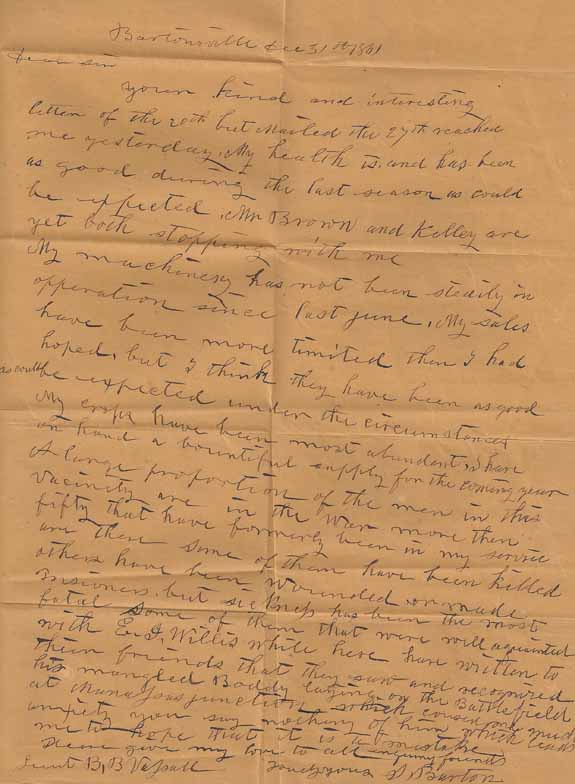 Bartonsville Dec 31th 1861
Dear sir
your kind and interesting
letter of the 20th but Mailed the 27th reached
me yesterday. My health is and has been
as good during the last season as could
be expected. Mr Brown and Kelley are
yet both stopping with me
My machinery has not been steadily in
opperation since last june. My sales
have been more limited then I had
hoped, but I think they have been as good
as could be expected under the circumstances
My crops have been most abundant, I have
on hand a bountiful supply for the coming year
A large proportion of the men in this
vacinity are in the War more then
fifty that have formerly been in my service
are there some of them have been killed
others have been wounded or made
Prisoners. but sickness has been the most
fatal some of them that were well acquainted
with E. J. Willis while here have written to
their friends that they saw and recognized
his mangled Boddy laying on the Battlefield
at Manassas junction which caused me much
anxiety you say nothing of him which leads
me to hope that it is a mistake
Please give my love to all my friends
Lieut B, B Vassall Truly yours D Barton